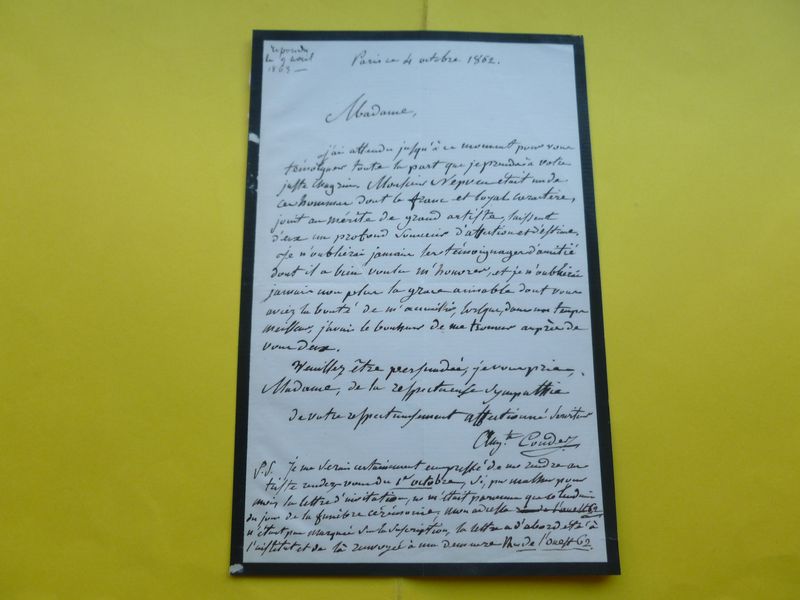 répondu
le 9 avril
1863 —
Paris ce 4 octobre 1862.
Madame,
j'ai attendu jusqu'à ce moment pour vous
témoigner toute la part que je prends à votre
juste chagrin. Monsieur Nepveu était un de
ces hommes dont le franc et loyal caractère,
joint au mérite de grand artiste, laissent
d'eux un profond souvenir d'affection et d'estime.
Je n'oublierai jamais les témoignages d'amitié
dont il a bien voulu m'honorer, et je n'oublierai
jamais non plus la grace aimable dont vous
aviez la bonté de m'accueillir, lorsque, dans un temps
meilleur, j'avais le bonheur de me trouver auprès de
vous deux.
Veuillez être persuadée, je vous prie,
Madame, de la respectueuse sympathie
de votre respectueusement affectionné serviteur
Aug.te Couder
P.S. Je me serais certainement empressé de me rendre au
triste rendez-vous du 1er octobre, si, par malheur pour
moi, la lettre d'invitation, ne m'était parvenue que le lendemain
du jour de la funèbre cérémonie, mon adresse rue de l'ouest 62
n'étant pas marquée sur la suscription, la lettre a d'abord été à
l'institut et de là renvoyée à ma demeure Rue de l'ouest 62.